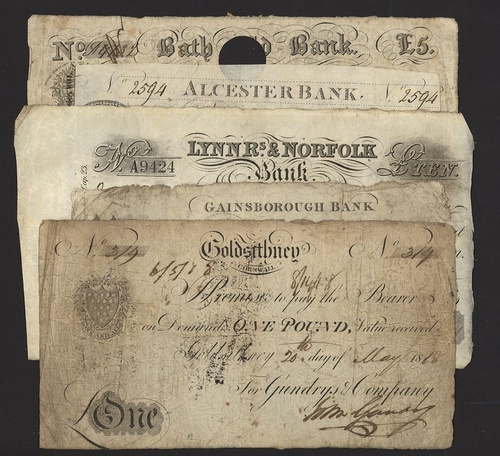 No
Bath Bank. £5.
No. 2594 ALCESTER BANK. No. 2594
LYNN Rs. & NORFOLK
No A9424 Bank. £TEN.
GAINSBOROUGH BANK
No. 319 Goldsithney No. 319
CORNWALL
I Promise to pay the Bearer
on Demand ONE POUND, Value received
Goldsithney 20th day of May 1818
For Gundrys & Company
£One